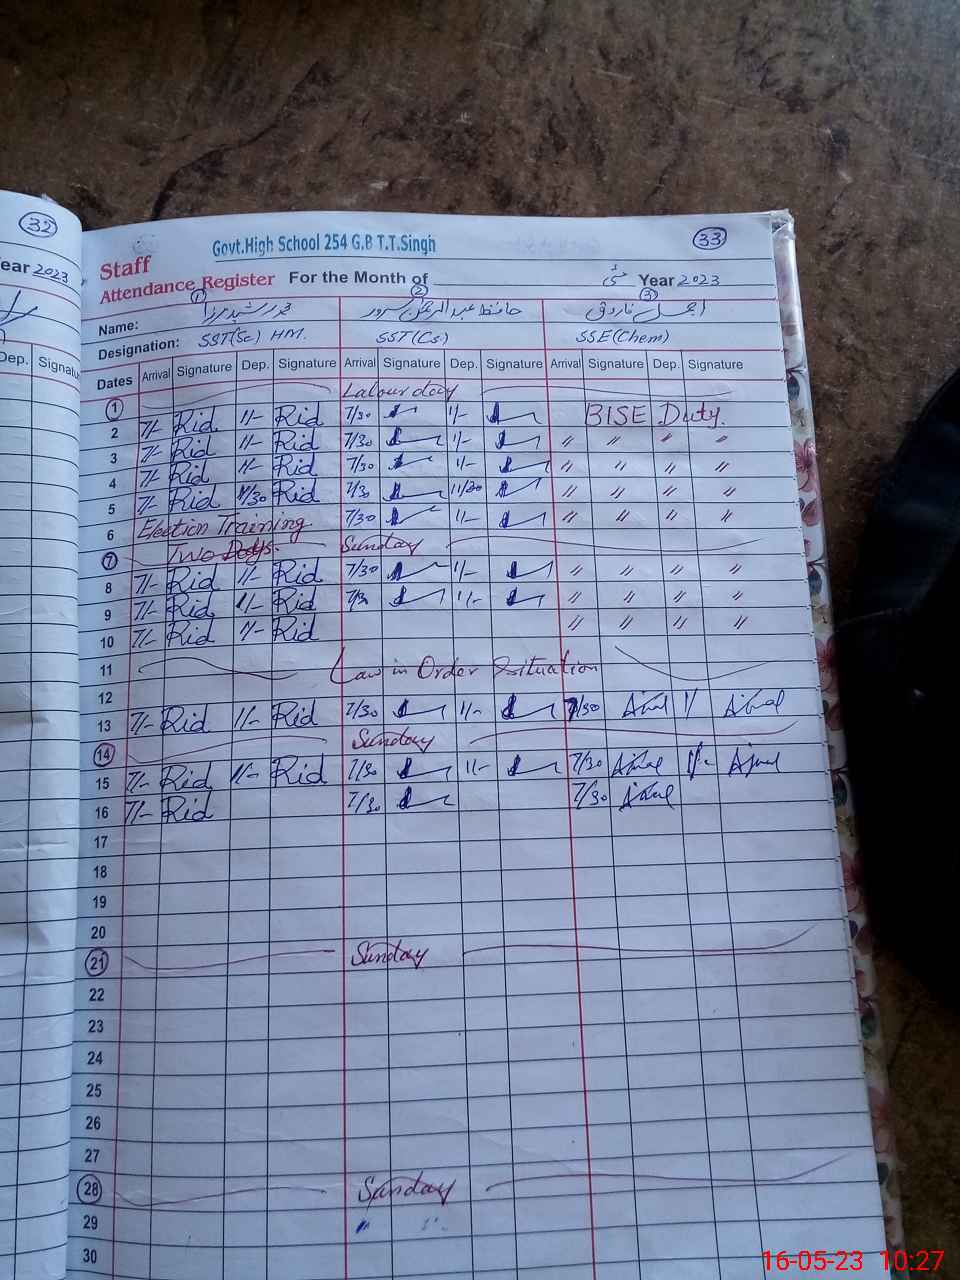 32
ear 2023
Dep. Signatu
Govt.High School 254 G.B T.T.Singh
33
Staff
Attendance Register For the Month of مئی Year 2023
1 2 3
Name: حافظ عبدالرحمن سرور
Designation: SST(Sc) HM. SST(Cs) SSE(Chem)
Dates Arrival Signature Dep. Signature Arrival Signature Dep. Signature Arrival Signature Dep. Signature
1 Labour day
2 7/- Rid 11/- Rid 7/30 1/- BISE Duty.
3 7/- Rid 11/- Rid 7/30 1/- " " " "
4 7/- Rid 11/- Rid 7/30 1/- " " " "
5 7/- Rid 11/30 Rid 7/30 11/30 " " " "
6 Election Training 7/30 1/- " " " "
7 Two Days. Sunday
8 7/- Rid 11/- Rid 7/30 1/- " " " "
9 7/- Rid 11/- Rid 7/30 11/- " " " "
10 7/- Rid 11/- Rid " " " "
11 Law in Order Situation
12
13 7/- Rid 11/- Rid 7/30 11/- 7/30 11/
14 Sunday
15 7/- Rid 11/- Rid 7/30 11/- 7/30 11/-
16 7/- Rid 7/30 7/30
17
18
19
20
21 Sunday
22
23
24
25
26
27
28 Sunday
29 "
30
16-05-23 10:27